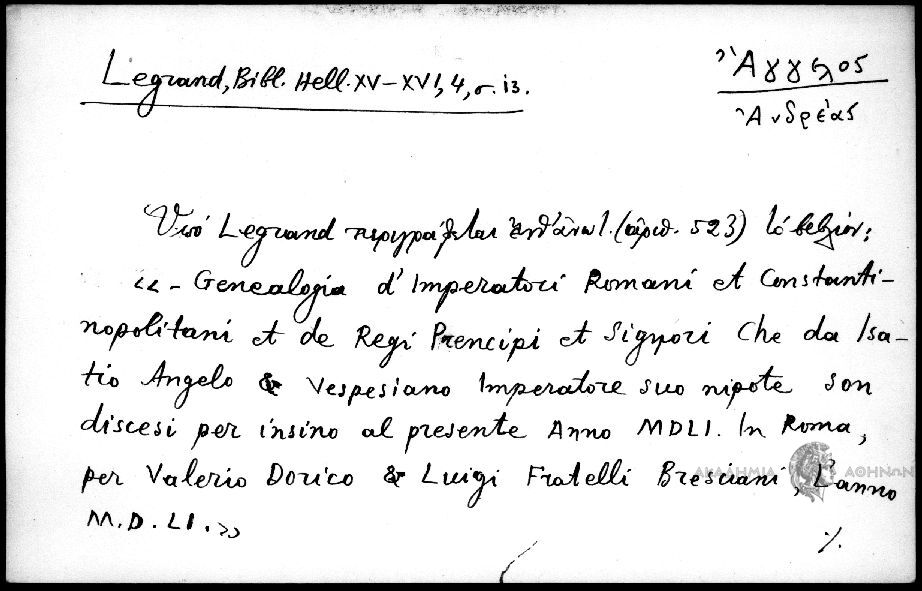 Legrand, Bibl. Hell. XV-XVI, 4, σ. 13.
Ἄγγελος
Ἀνδρέας
Ὑπό Legrand περιγράφεται ἐνθ᾽ ἀνωτ. (ἀριθ. 523) τό βιβλίον:
«- Genealogia d'Imperatori Romani et Constanti-
nopolitani et de Regi Prencipi et Signori Che da Isa-
tio Angelo & Vespesiano Imperatore suo nipote son
discesi per insino al presente Anno MDLI. In Roma,
per Valerio Dorico & Luigi Fratelli Bresciani, L'anno
M.D.LI.»
ΑΚΑΔΗΜΙΑ ΑΘΗΝΩΝ
./.